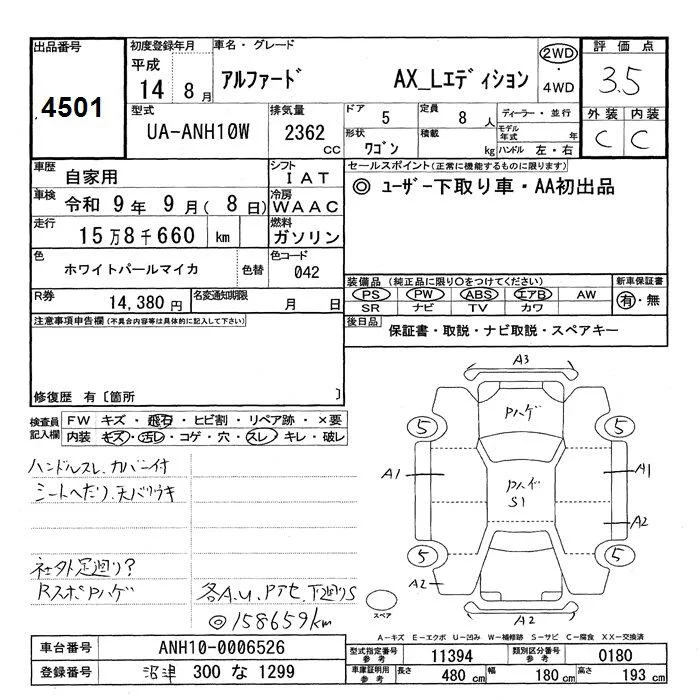 出品番号
4501
初度登録年月
平成
14 8月
車名・グレード
アルファード AX_Lエディション
2WD
・
4WD
評価点
3.5
外装 内装
C C
型式
UA-ANH10W
排気量
2362
CC
ドア 5
形状
ワゴン
定員 8 人
積載 kg
ディーラー・並行
モデル
年式 年
ハンドル 左・右
車歴
自家用
シフト
I A T
車検
令和 9 年 9 月( 8 日)
冷房
W A A C
走行
15万8千660 km
燃料
ガソリン
色
ホワイトパールマイカ
色替
色コード
042
R券
14,380 円
名変通知期限
月 日
セールスポイント(正常に機能するものに限ります)
◎ ユーザー下取り車・AA初出品
装備品 (純正品に限り○をつけてください)
PS PW ABS エアB AW
SR ナビ TV カワ
新車保証書
有・無
後日品
保証書・取説・ナビ取説・スペアキー
注意事項申告欄(不具合内容等は具体的に記入して下さい)
修復歴 有〔箇所 〕
検査員
記入欄
FW キズ・飛石・ヒビ割・リペア跡・×要
内装 キズ・汚レ・コゲ・穴・スレ・キレ・破レ
ハンドルスレ、カバー付
シートへたり、天バリウキ
社外足廻り?
Rスポpハゲ
各A.U.Pアセ.下廻りS
◎158659km
A3
Pハゲ
5
5
A1
A1
Pハゲ
S1
A2
5
5
A2
A2
スペア
A-キズ E-エクボ U-凹み W-補修跡 S-サビ C-腐食 XX-交換済
車台番号
ANH10-0006526
登録番号
沼津 300 な 1299
型式指定番号
参考
11394
類別区分番号
参考
0180
車庫証明用
参考
長さ 480 cm
幅 180 cm
高さ 193 cm